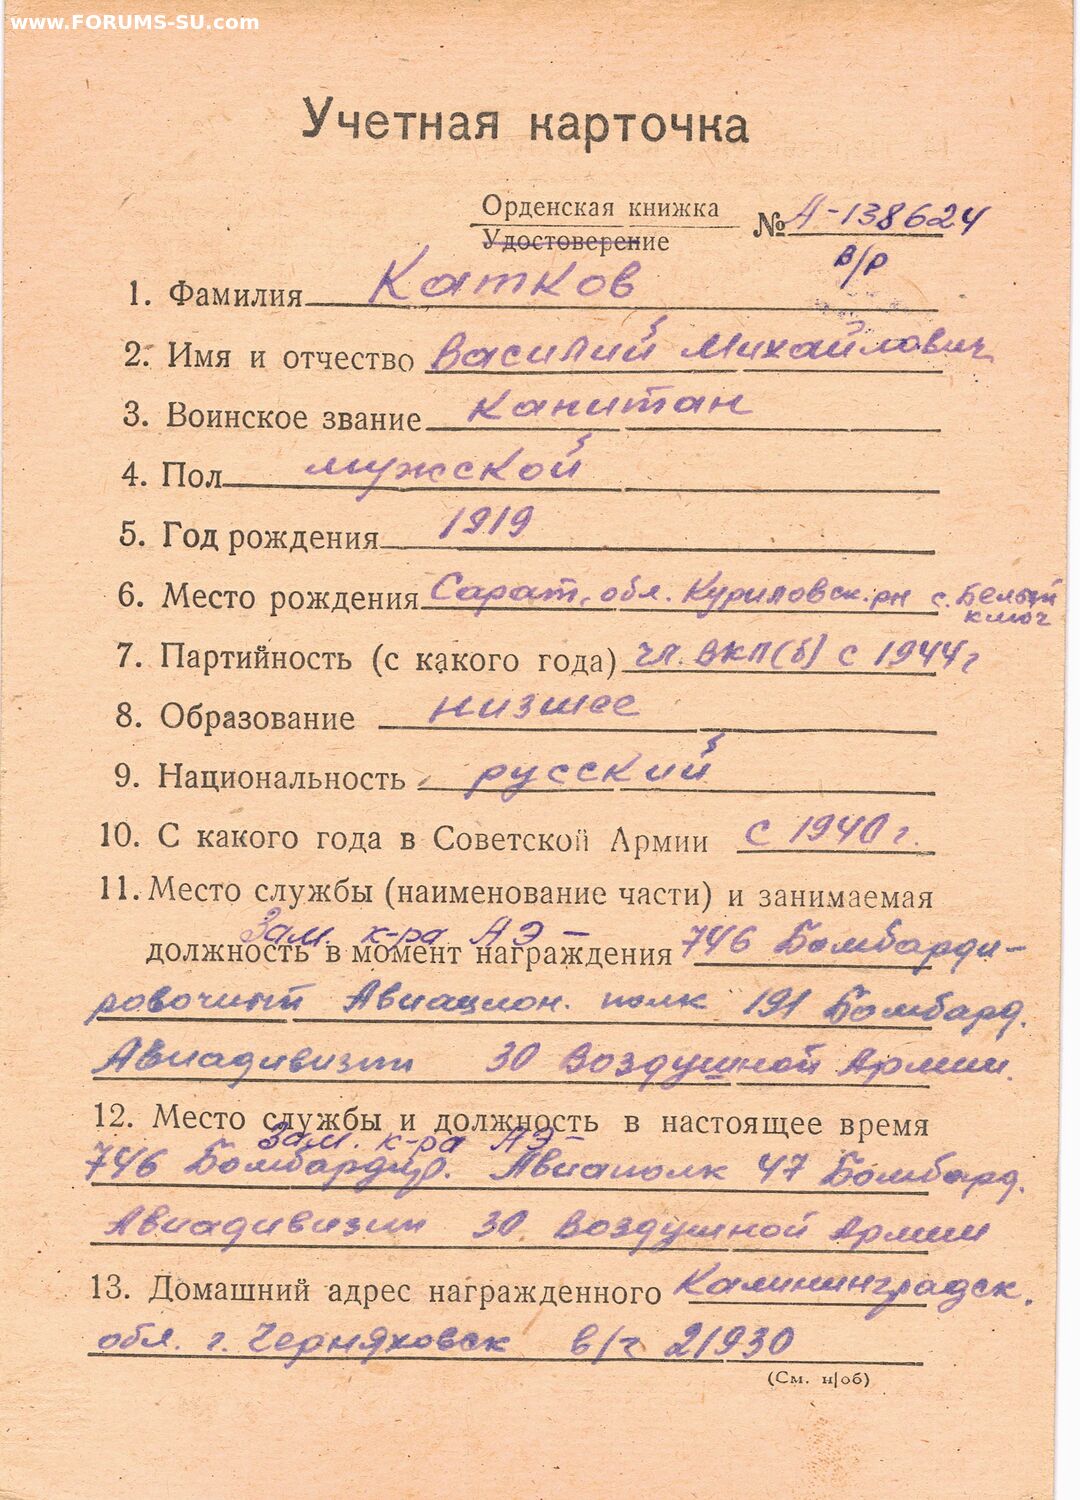 www.FORUMS-SU.com
Учетная карточка
Орденская книжка
Удостоверение
№ А-138624
в/р
1. Фамилия Катков
2. Имя и отчество Василий Михайлович
3. Воинское звание капитан
4. Пол мужской
5. Год рождения 1919
6. Место рождения Сарат. обл. Куриловск. рн с. Белый
ключ
7. Партийность (с какого года) чл. ВКП(б) с 1944 г
8. Образование низшее
9. Национальность русский
10. С какого года в Советской Армии с 1940 г.
11. Место службы (наименование части) и занимаемая
Зам. к-ра АЭ –
должность в момент награждения 746 Бомбарди-
ровочный Авиацион. полк 191 Бомбард.
Авиадивизии 30 Воздушной Армии.
12. Место службы и должность в настоящее время
Зам. к-ра АЭ –
746 Бомбардир. Авиаполк 47 Бомбард.
Авиадивизии 30 Воздушной Армии
13. Домашний адрес награжденного Калининградск.
обл. г. Черняховск в/ч 21930
(См. н/об)